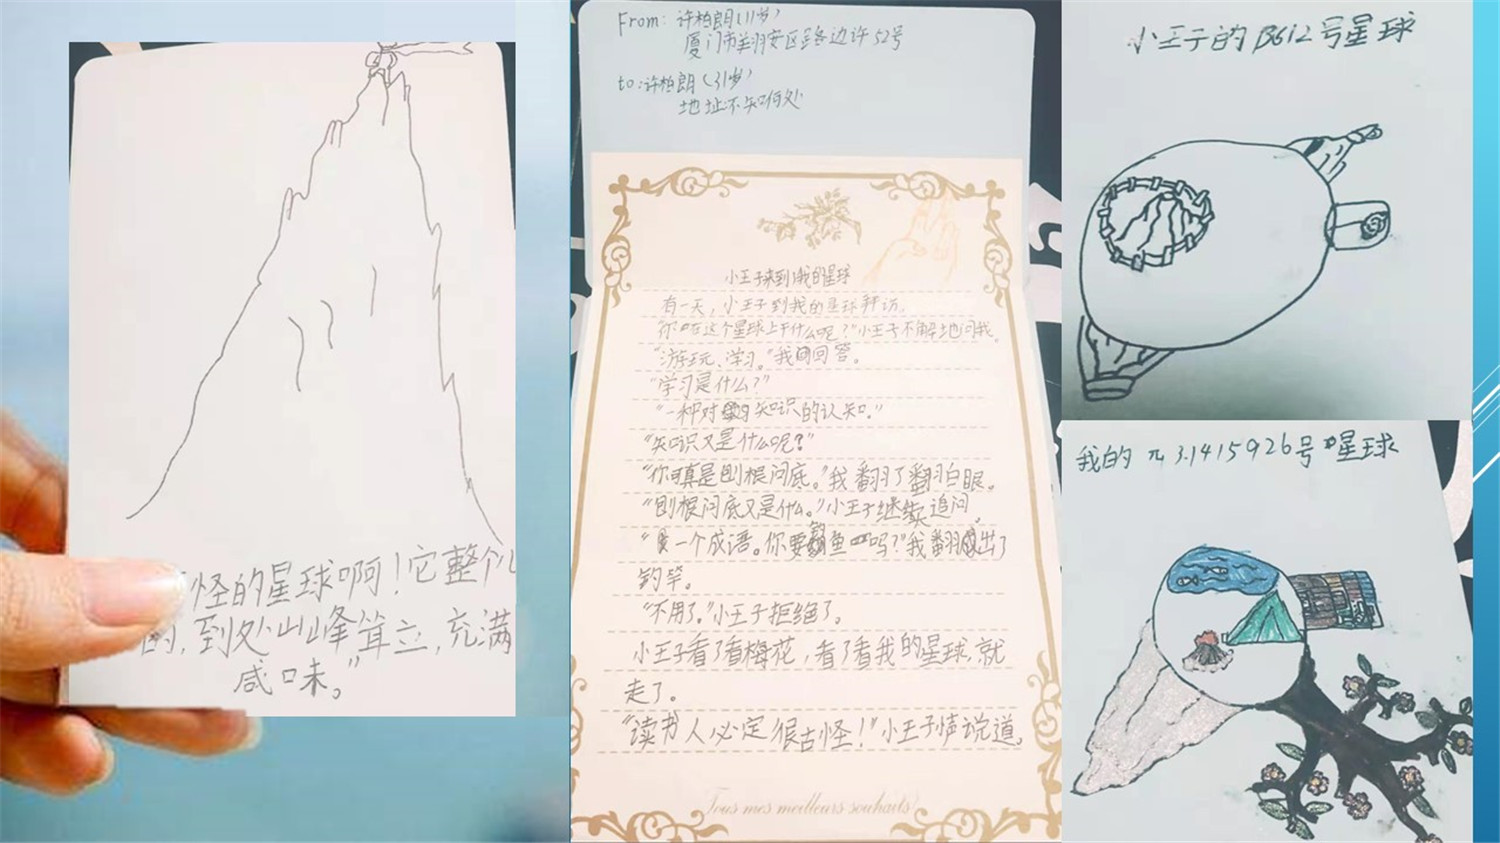 怪的星球啊！它整个
的，到处山峰耸立，充满
咸味。”
From：许柏朗（11岁）
厦门市翔安区路边许52号
to：许柏朗（31岁）
地址不知何处
小王子来到我的星球
有一天，小王子到我的星球拜访。
你在这个星球上干什么呢？”小王子不解地问我。
“游玩、学习。”我回答。
“学习是什么？”
“一种对知识的认知。”
“知识又是什么呢？”
“你真是刨根问底。”我翻了翻白眼。
“刨根问底又是什么。”小王子继续追问。
“一个成语。你要钓鱼吗？”我翻出了
钓竿。
“不用了。”小王子拒绝了。
小王子看了看梅花，看了看我的星球，就
走了。
“读书人必定很古怪！”小王子情说道。
Tous mes meilleurs souhaits!
小王子的B612号星球
我的π3.1415926号星球